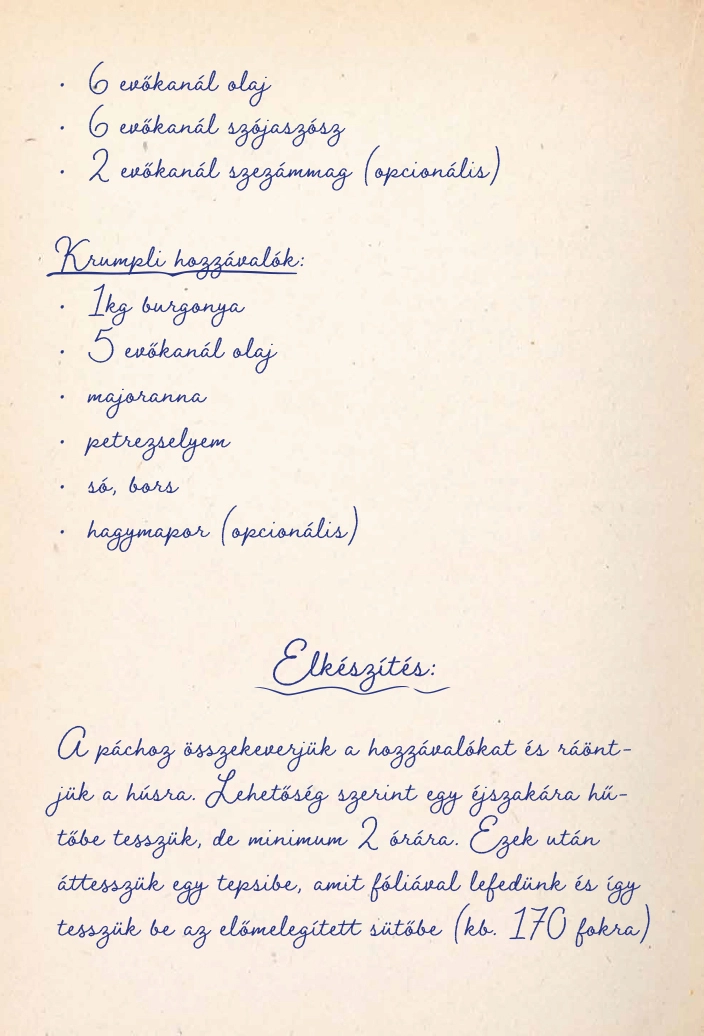 · 6 evőkanál olaj
· 6 evőkanál szójaszósz
· 2 evőkanál szezámmag (opcionális)
Krumpli hozzávalók:
· 1kg burgonya
· 5 evőkanál olaj
· majoranna
· petrezselyem
· só, bors
· hagymapor (opcionális)
Elkészítés:
A páchoz összekeverjük a hozzávalókat és ráönt-
jük a húsra. Lehetőség szerint egy éjszakára hű-
tőbe tesszük, de minimum 2 órára. Ezek után
áttesszük egy tepsibe, amit fóliával lefedünk és így
tesszük be az előmelegített sütőbe (kb. 170 fokra)